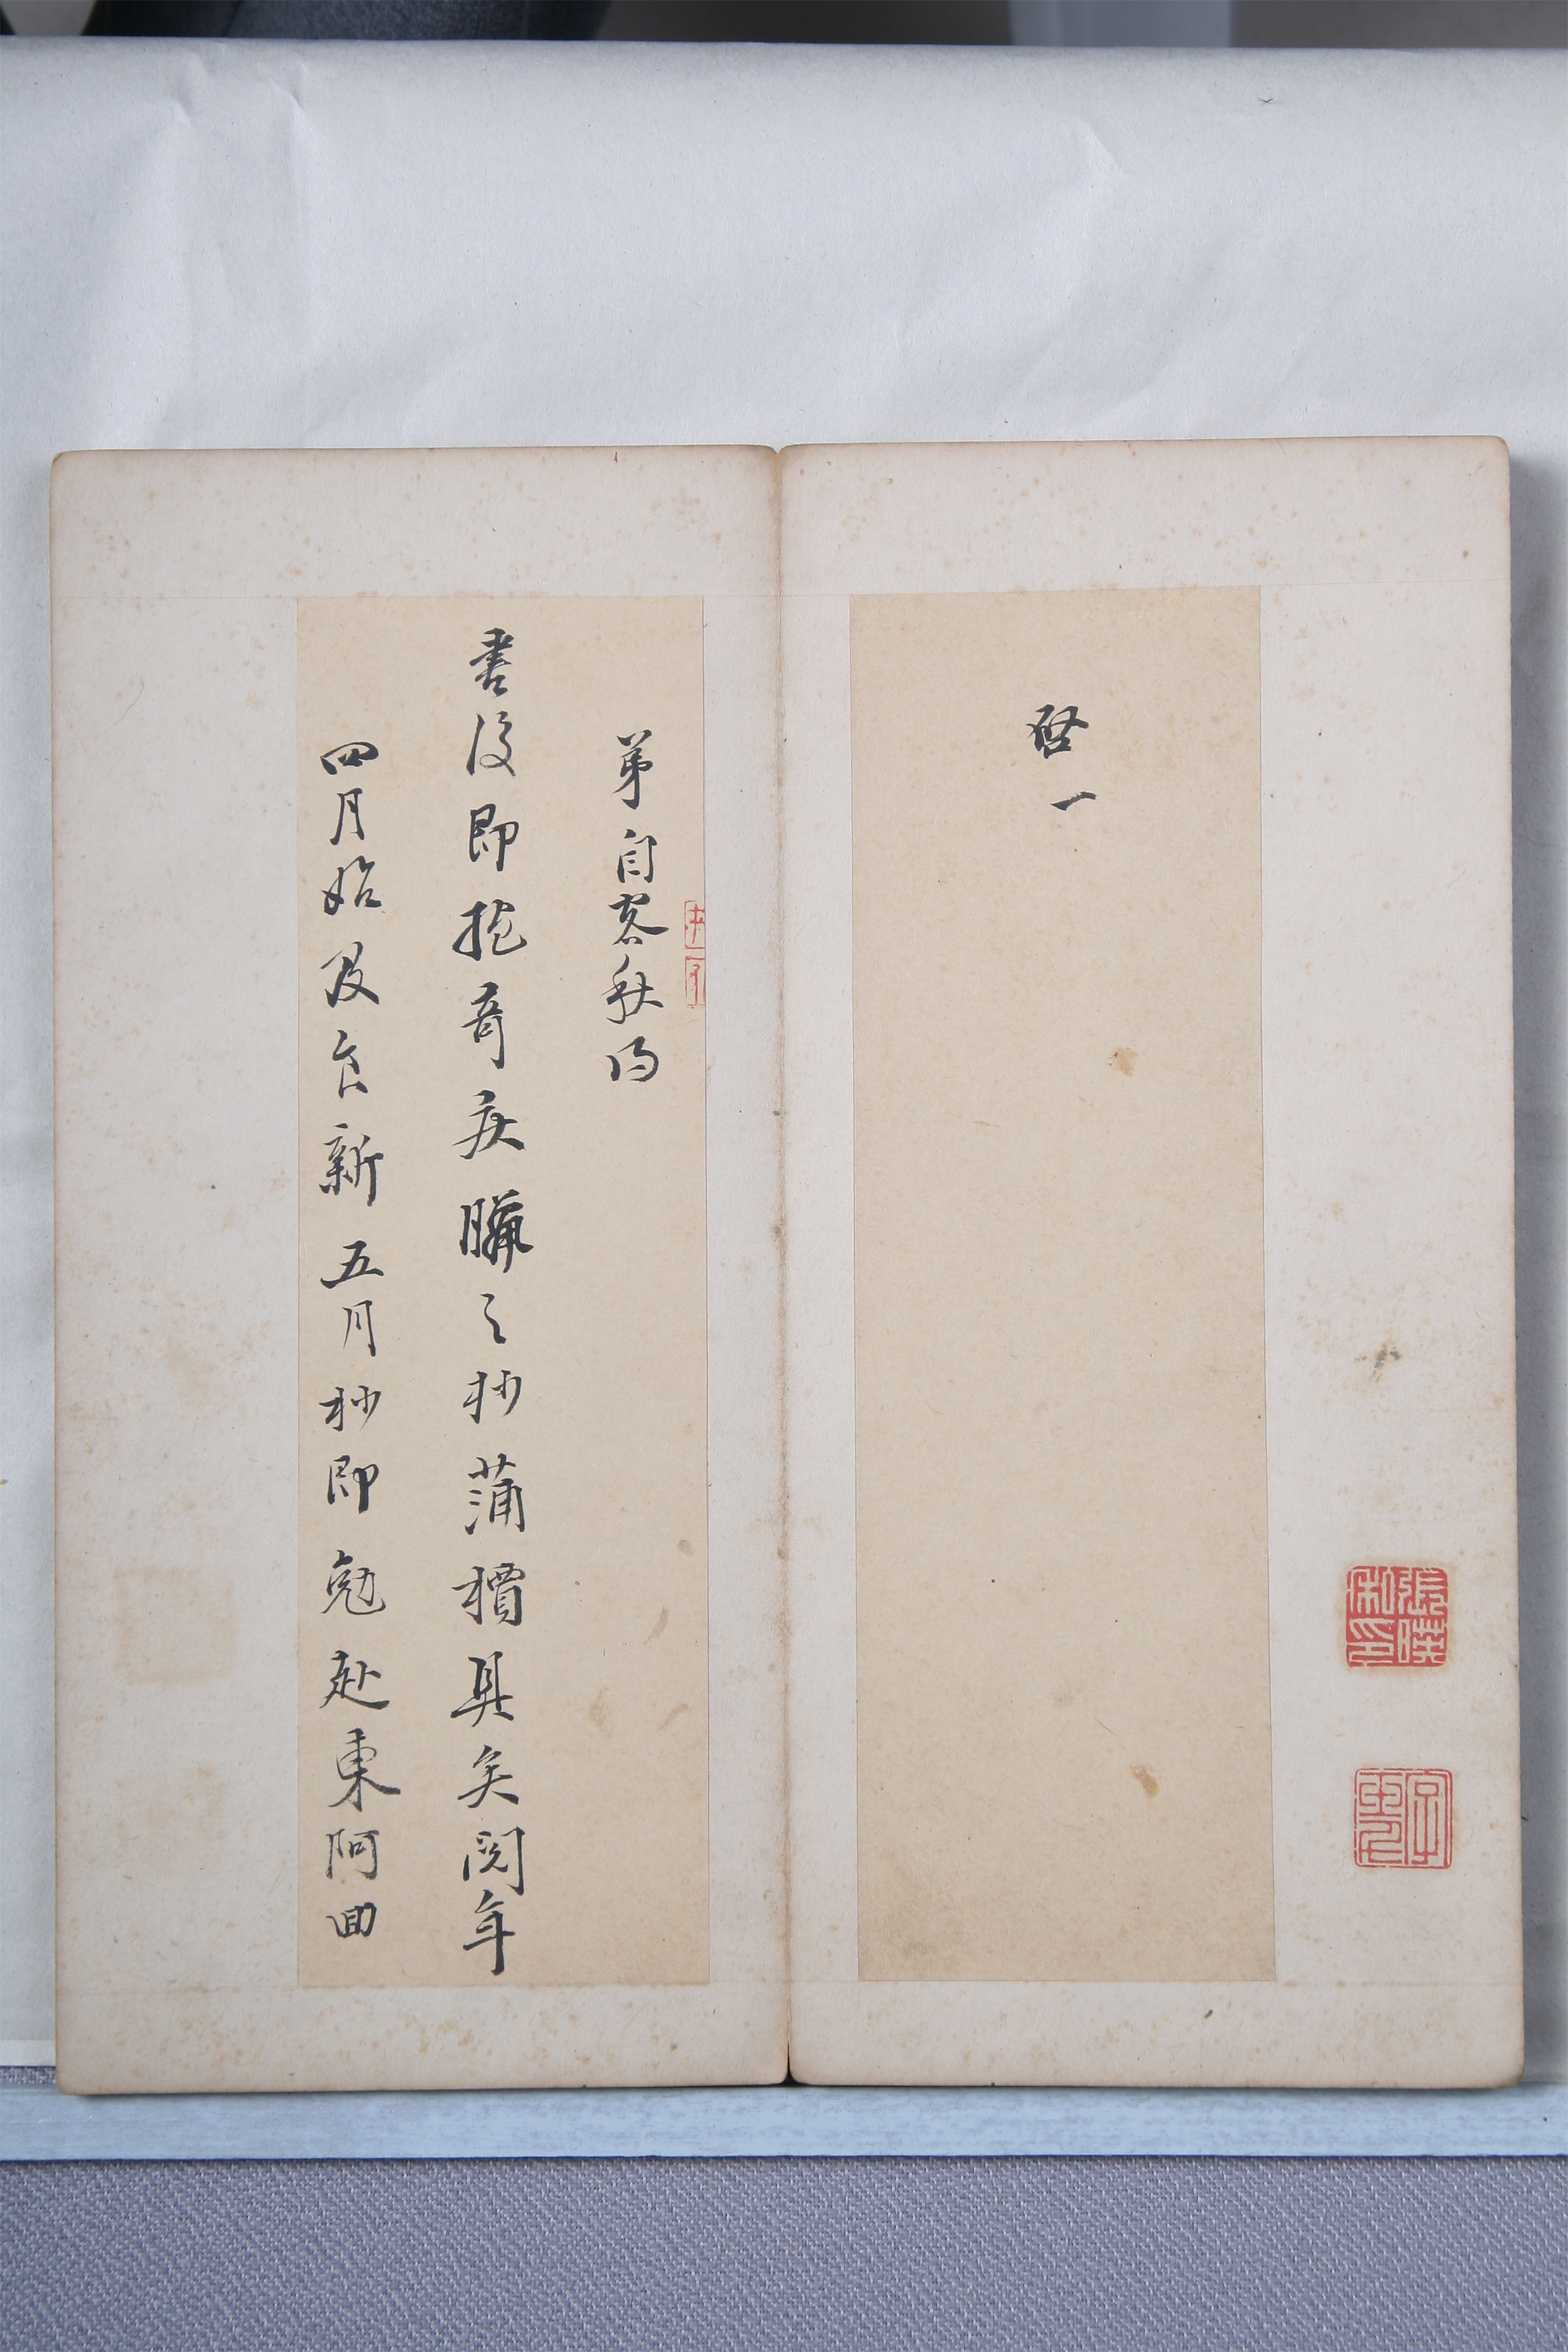 啓一
弟自客秋得
書後即抱奇疾臘之杪蒲檟具矣閱年
四月始及食新五月杪即勉赴東阿回